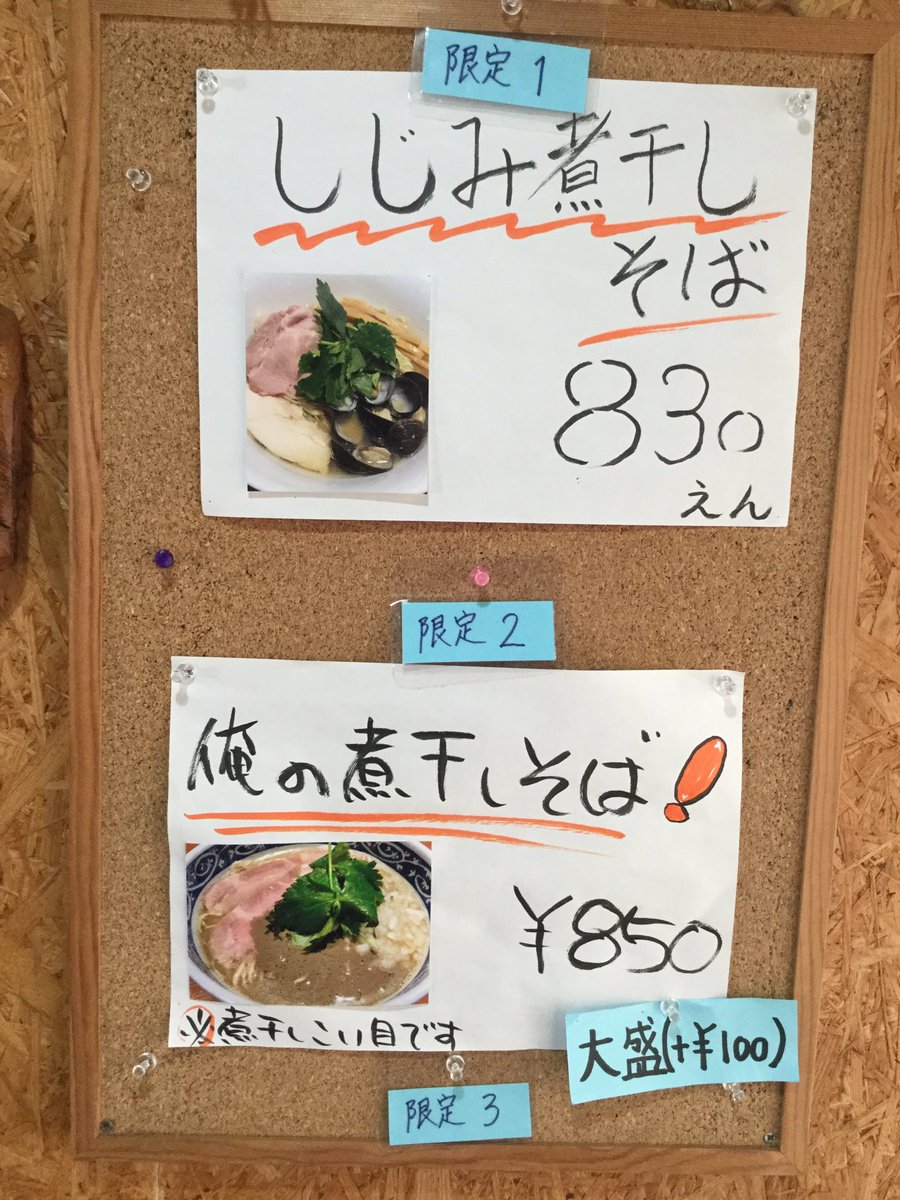 限定 1
しじみ煮干し
そば
830
えん
限定 2
俺の煮干しそば!
¥850
※煮干しこい目です
大盛(+¥100)
限定 3